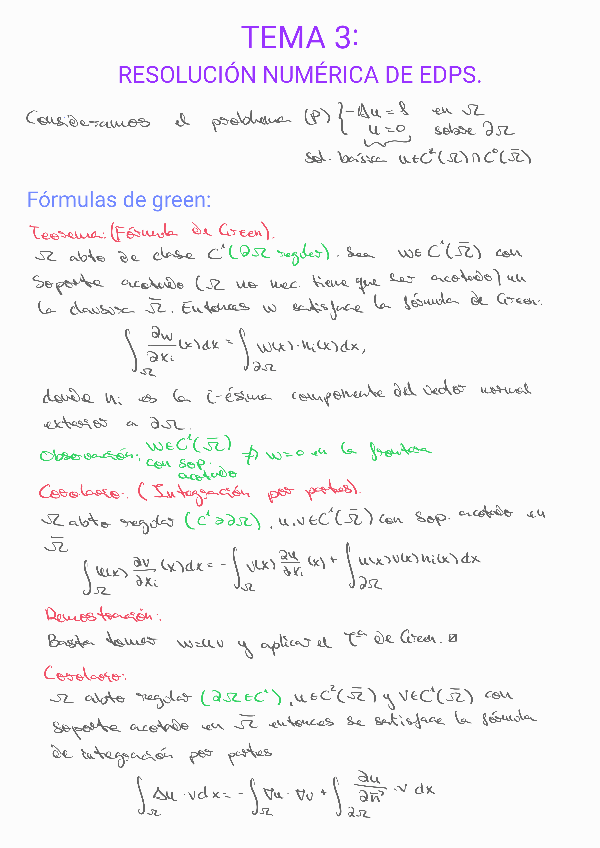 TEMA 3:
RESOLUCIÓN NUMÉRICA DE EDPS.
Consideramos el problema (P) { -Δu = f en Ω
u = 0 sobre ∂Ω
sol. básica u∈C²(Ω)∩C⁰(Ω̅)
Fórmulas de green:
Teorema: (Fórmula de Green).
Ω abto de clase C¹ (∂Ω regular). Sea w∈C¹(Ω̅) con
soporte acotado (Ω no nec. tiene que ser acotado) en
la clausura Ω̅. Entonces w satisface la fórmula de Green:
∫_Ω ∂w/∂xi (x)dx = ∫_∂Ω w(x)·ni(x)dx,
donde ni es la i-ésima componente del vector normal
exterior a ∂Ω.
Observación: w∈C¹(Ω̅) con sop. acotado ⇏ w=0 en la frontera
Corolario: (Integración por partes).
Ω abto regular (C¹∋∂Ω), u,v∈C¹(Ω̅) con sop. acotado en
Ω̅
∫_Ω u(x) ∂v/∂xi (x)dx = -∫_Ω v(x) ∂u/∂xi (x) + ∫_∂Ω u(x)v(x)ni(x)dx
Demostración:
Basta tomar w=uv y aplicar el Tª de Green.
Corolario:
Ω abto regular (∂Ω∈C¹), u∈C²(Ω̅) y v∈C¹(Ω̅) con
soporte acotado en Ω̅ entonces se satisface la fórmula
de integración por partes
∫_Ω Δu · v dx = -∫_Ω ∇u · ∇v + ∫_∂Ω ∂u/∂n⃗ · v dx